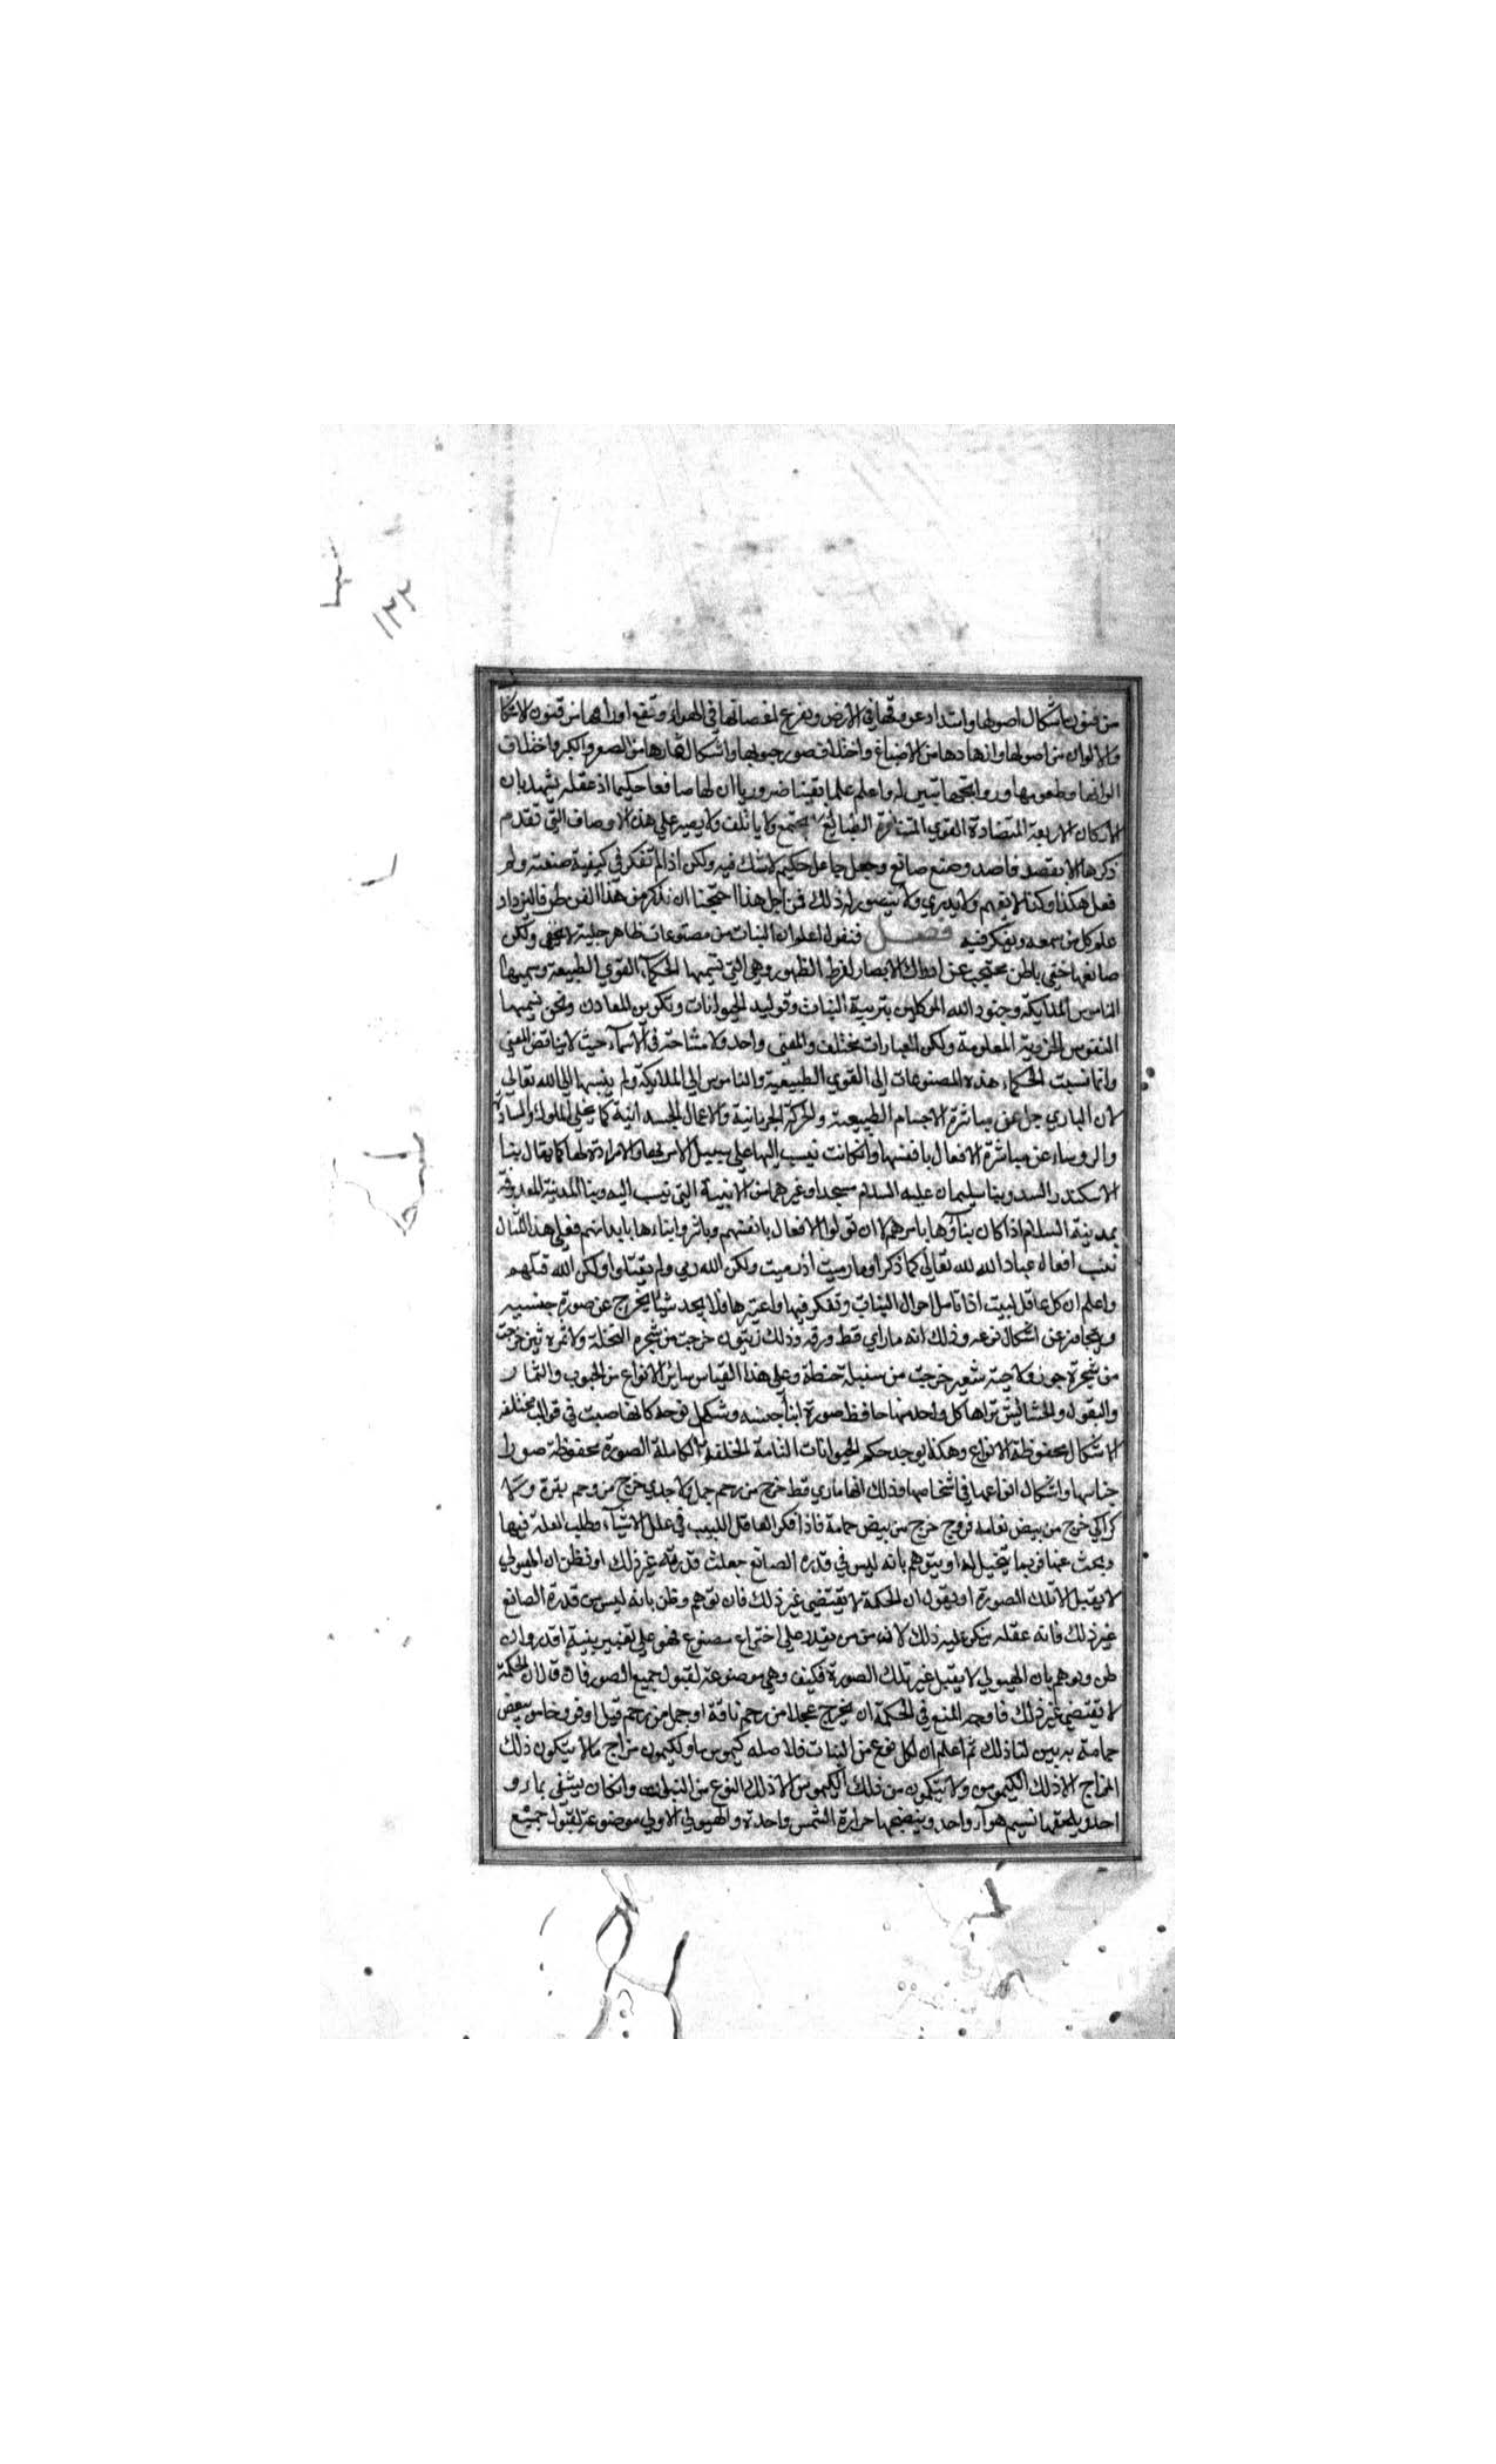 ١٢٢
من فنون اشكال اصولها وامتداد عروقها في الارض وتفرع اغصانها في الهواء وتقع اوراقها من فنون الاشكا
والالوان من اصولها وازهارها من الاصباغ واختلاف صور حبوبها واشكال ثمارها من الصغر والكبر واختلاف
الوانها وطعومها وروايحها تبين له واعلم علما يقينا ضروريا ان لها صانعا حكيما اذ عقله يشهد بان
الاركان الاربعة المتضادة القوي المتنافرة الطبائع لا يجتمع ولا ياتلف ولا يصير علي هذه الاوصاف التي تقدم
ذكرها الا بقصد قاصد وصنع صانع وجعل جاعل حكيم لا شك فيه ولكن اذا لم تفكر في كيفية صنعته ولم
فعل هكذا وكذا لا تفهم ولا يدري ولا يتصور له ذلك فمن اجل هذا احتجنا ان نذكر من هذا الفن طرفا ليزداد
علم كل من سمعه ويفكر فيه فصل فنقول اعلم ان النبات من مصنوعات ظاهر جلية لا تخفي ولكن
صانعها خفي باطن محتجب عن ادراك الابصار لفرط الظهور وهي التي تسميها الحكمآء القوي الطبيعة وسميها
الناموس الملايكة وجنود الله الموكلين بتربية النبات وتوليد الحيوانات وتكوين المعادن ونحن نسميها
النفوس الجزوية المعلومة ولكن العبارات مختلف والمعني واحد ولا مشاحة في الاسمآء حيث لا يناقض المعني
وانما نسبت الحكماء هذه المصنوعات الي القوي الطبيعية والناموس الي الملايكة ولم ينسبها الي الله تعالي
لان الباري جل عن مباشرة الاجسام الطبيعية والحركة الجرمانية والاعمال الجسدانية كما يخلي الملوك والسادة
والروساء عن مباشرة الافعال بانفسها وان كانت نسب اليها علي سبيل الامر بها والارادة لها كما يقال بنا
الاسكندر السد وبنا سليمان عليه السلام مسجدا وغيرهما من الابنية التي نسب اليه وبنا المدينة المعروفة
بمدينة السلام اذا كان بناؤها بامرهم لا ان تولوا الافعال بانفسهم وباشروا بناءها بايدانهم فعلي هذا المثال
نسب افعال عباد الله لله تعالي كما ذكر او ما رميت اذ رميت ولكن الله رمي ولم يقتلوا ولكن الله قتلهم
واعلم ان كل عاقل لبيب اذا تامل احوال النبات وتفكر فيها واعتبرها فلا يجد شيئا يخرج عن صورة جنسيه
ويتجاوز عن اشكال نوعه وذلك انه ما راي قط ورقة وذلك زيتون خرجت من شجره النخلة ولا ثمره تين خرجت
من شجرة جوز ولا حبة شعير خرجت من سنبلة حنطة وعلي هذا القياس سائر الانواع من الحبوب والثمار
والبقول والحشائيش تراها كل واحد منها حافظ صورة ابنآ جنسه وشكل نوعه كانها صبت في قوالب مختلفه
الاشكال محفوظة الانواع وهكذا يوجد حكم الحيوانات التامة الخلقة الكاملة الصورة محفوظة صورا
جناسها واشكال انواعها في اشخاصها وذلك انها ما راي قط خرج من رحم جمل ولا جدي خرج من رحم بقرة ولا
كراكي خرج من بيض نعامة فروج خرج من بيض حمامة فاذا فكر العاقل اللبيب في علل الاشيآء وطلب العلة فيها
وبحث عنها فربما يتخيل له او يتوهم بانه ليس في قدره الصانع جعلت قدرته غير ذلك او نظن ان الهيولي
لا يقبل الا تلك الصورة او يقول ان الحكمة لا يقتضي غير ذلك فان توهم وظن بانه ليس من قدرة الصانع
غير ذلك فانه عقله ينكر عليه ذلك لانه من من يقدر علي اختراع مصنوع فهو علي تغيير بنيته اقدر وان
ظن وتوهم بان الهيولي لا يقبل غير تلك الصورة فكيف وهي موضوعة لقبول جميع الصور فان قال ان الحكمة
لا تقتضي غير ذلك فاوجه المنع في الحكمة ان يخرج عجلا من رحم ناقة او جمل من رحم فيل او فروخا من بيض
حمامة به بين لنا ذلك ثم اعلم ان لكل نوع من النبات فلاصله كيموس ما ولكيموس مزاج ما لا يتكون ذلك
المزاج الا ذلك الكيموس ولا يتكون من ذلك الكيموس الا ذلك النوع من النبات وان كان يسقي بما و
احد ويلحقها نسيم هوآء واحد وينضجها حرارة الشمس واحدة والهيولي الاولي موضوعة لقبول جميع